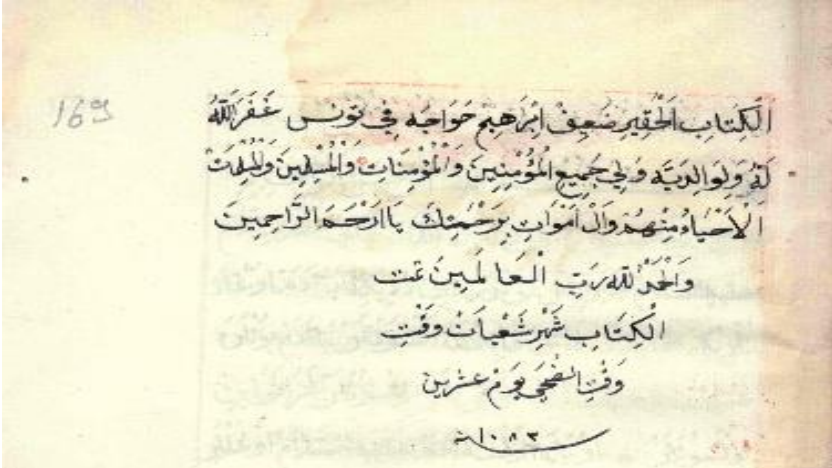 169
الْكِتَابِ الْحَقِيرِ ضَعِيفْ اِبْرَاهِيمْ خَوَاجَه فِي تُونِسْ غَفَرَ اللّٰهُ
لَهُ وَلِوَالِدَيَّه وَلِي جَمِيعِ الْمُؤْمِنِينَ وَالْمُؤْمِنَاتِ وَالْمُسْلِمِينَ وَالْمُسْلِمَاتْ
الْاَحْيَاءُ مِنْهُمْ وَالْ اَمْوَاتِ بِرَحْمَتِكَ يَا اَرْحَمَ الرَّاحِمِينَ
وَالْحَمْدُ لِلّٰهِ رَبِّ الْعَالَمِينَ تمت
الْكِتَابِ شَهْرِ شَعْبَانْ وَقْتِ
وَقْتِ الضُّحَى يَومْ عشرين
سنة ١٠٨٣